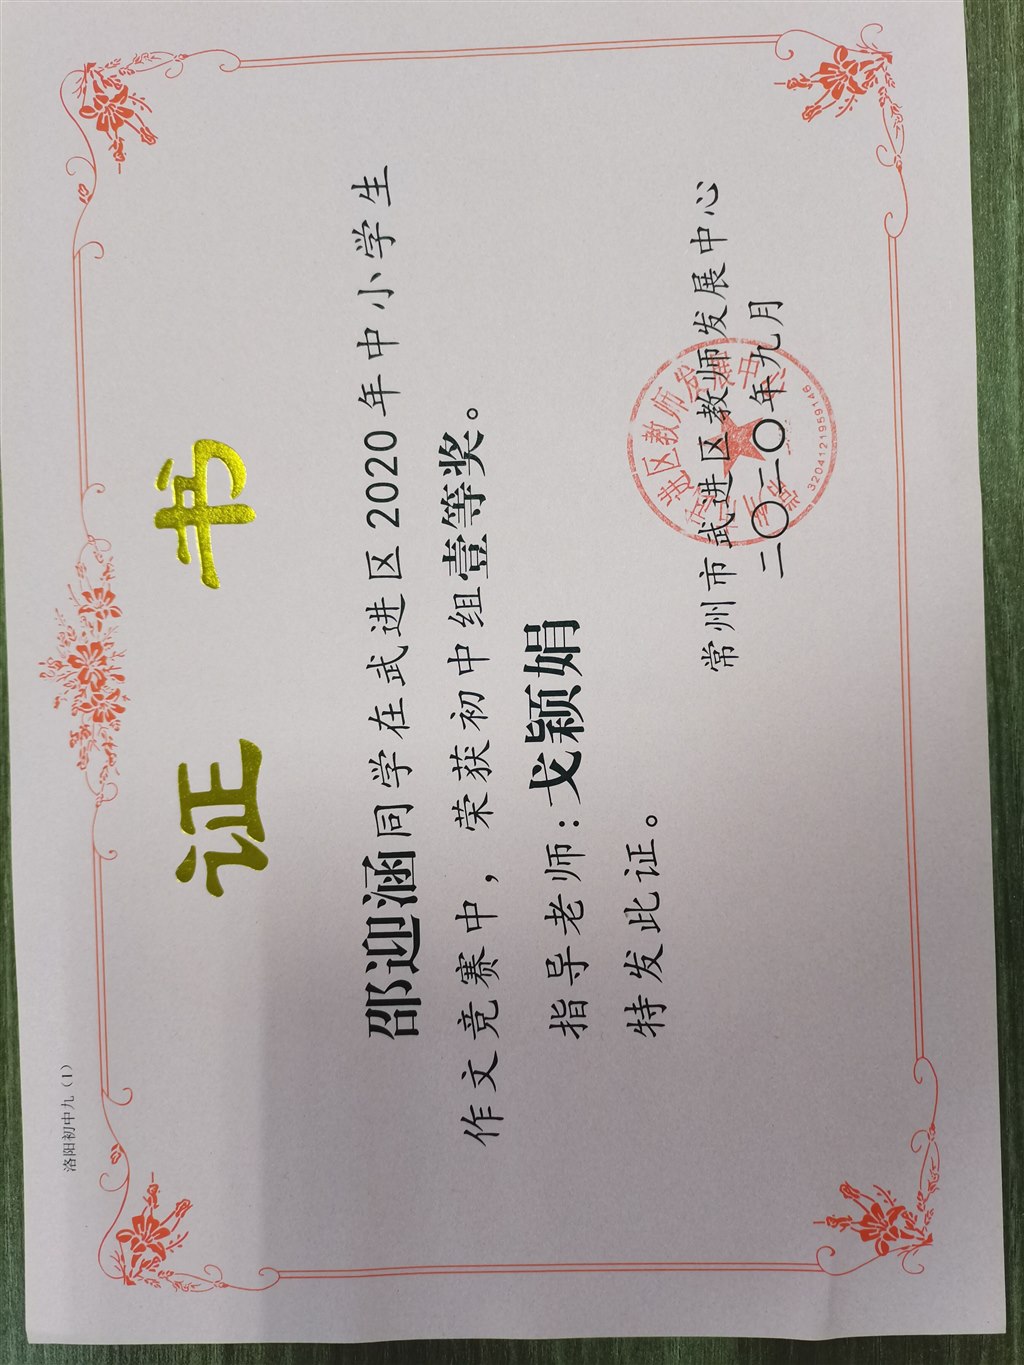 洛阳初中九（1）
证书
邵迎涵同学在武进区2020年中小学生
作文竞赛中，荣获初中组壹等奖。
指导老师：戈颖娟
特发此证。
常州市武进区教师发展中心
二〇二〇年九月
3204121959146